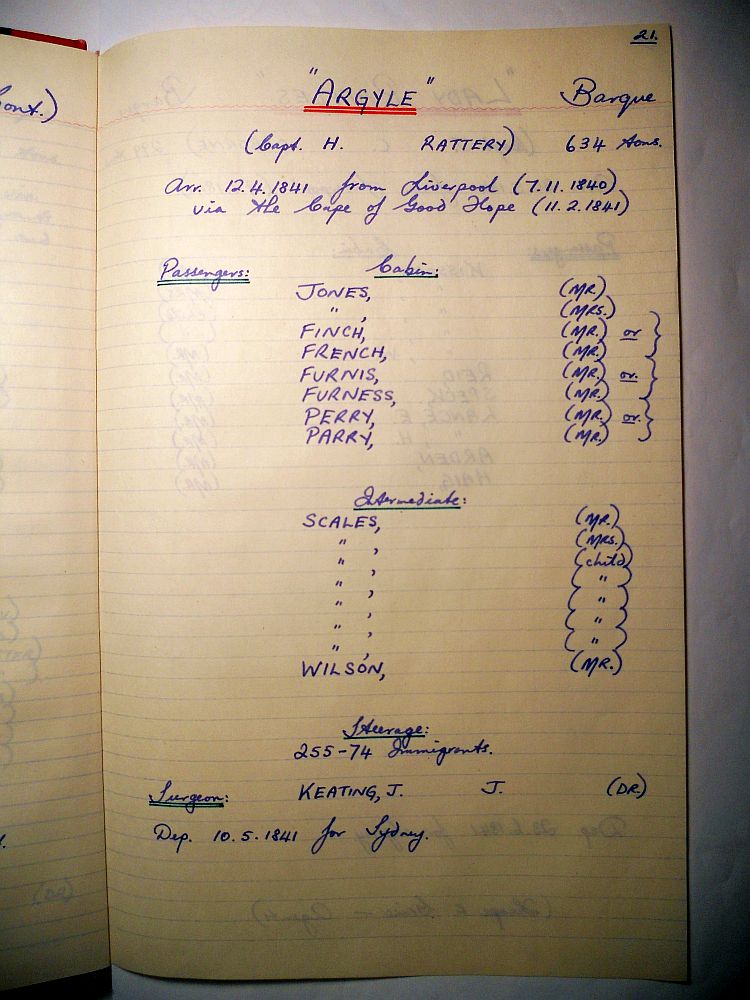 ont.)
21.
"ARGYLE" Barque
(Capt. H. RATTERY) 634 tons.
Arr. 12.4.1841 from Liverpool (7.11.1840)
via the Cape of Good Hope (11.2.1841)
Passengers: Cabin:
JONES, (MR.)
" , (MRS.)
FINCH, (MR.) or
FRENCH, (MR.)
FURNIS, (MR.) or
FURNESS, (MR.)
PERRY, (MR.) or
PARRY, (MR.)
Intermediate:
SCALES, (MR.)
" , (MRS.)
" , (child)
" , "
" , "
" , "
" , "
WILSON, (MR.)
Steerage:
255-74 Immigrants.
Surgeon: KEATING, J. J. (DR.)
Dep. 10.5.1841 for Sydney.